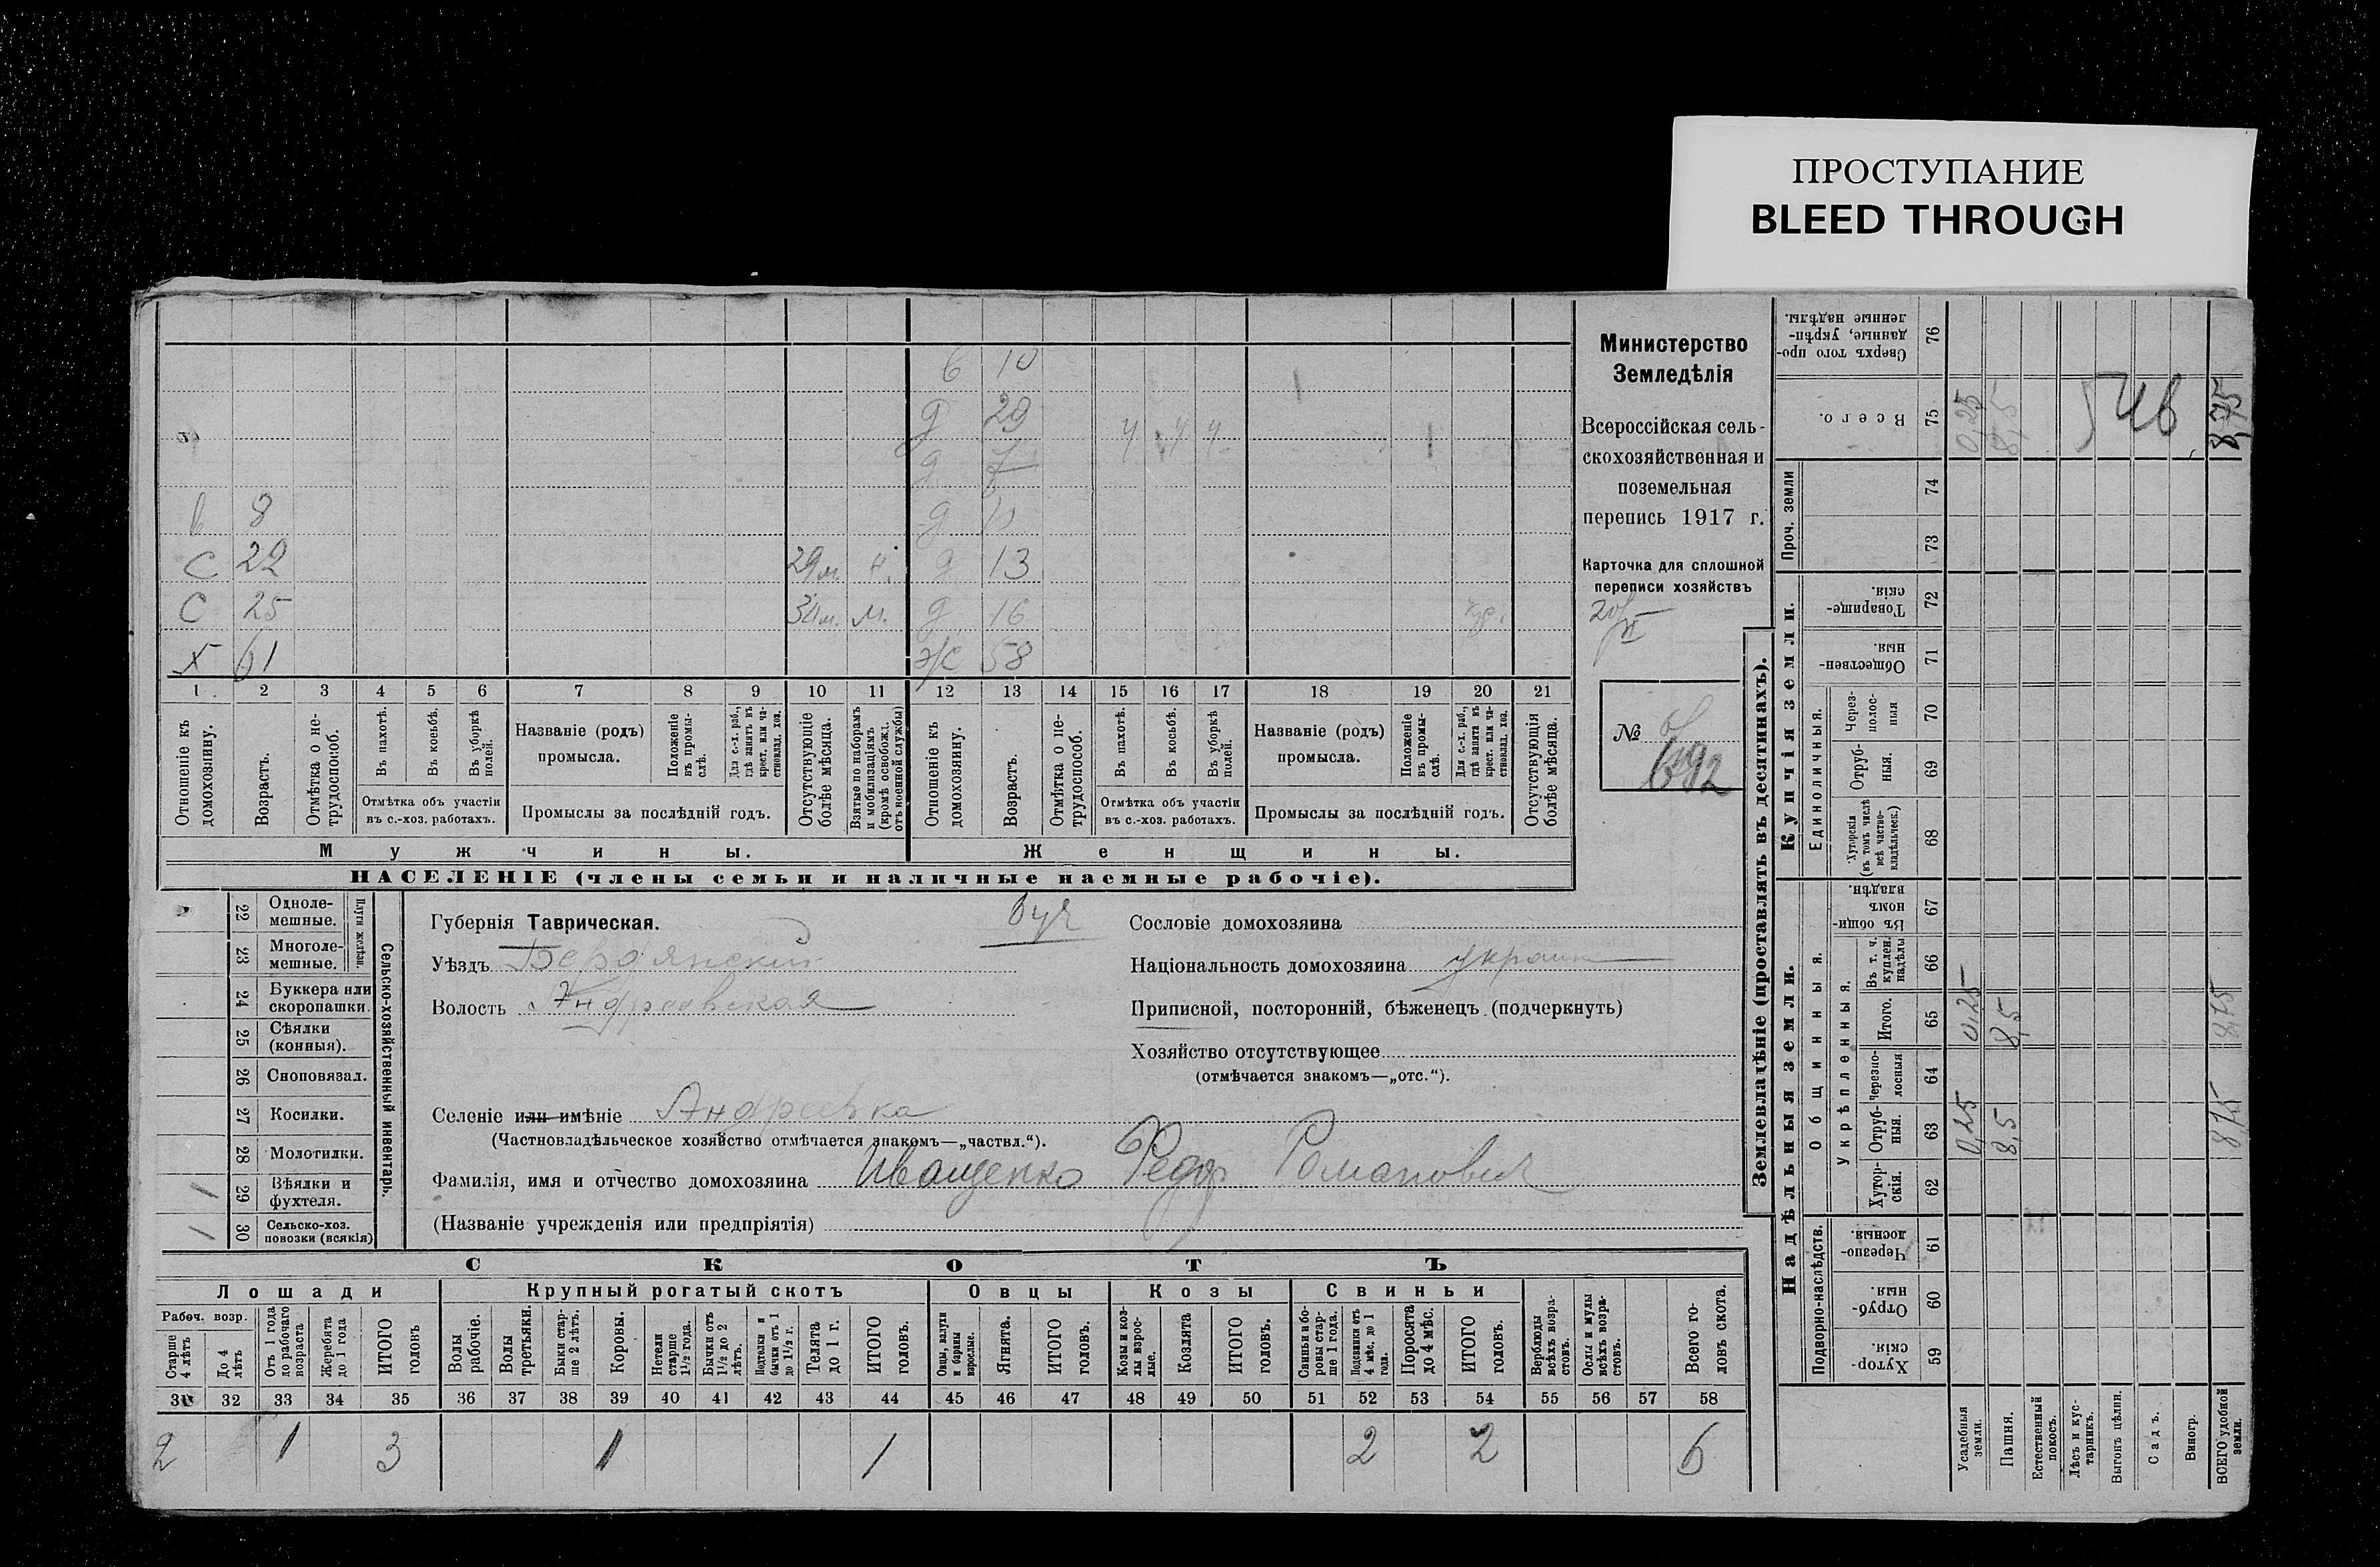 ПРОСТУПАНИЕ
BLEED THROUGH
Министерство
Земледѣлія
Всероссійская сель-
скохозяйственная и
поземельная
перепись 1917 г.
Карточка для сплошной
переписи хозяйствъ
№
в 10
д 29 ч ч ч
д 7
в 8 д 10
С 22 29м. н. д 13
С 25 34м. м. д 16
Х 61 Ж 58
1 2 3 4 5 6 7 8 9 10 11 12 13 14 15 16 17 18 19 20 21
Отношеніе къ домохозяину.
Возрастъ.
Отмѣтка о не-трудоспособ.
Въ пахотѣ.
Въ косьбѣ.
Въ уборкѣ полей.
Отмѣтка объ участіи
въ с.-хоз. работахъ.
Названіе (родъ)
промысла.
Положеніе въ промы-слѣ.
Для с.-х. раб., гдѣ занятъ въ крест. или ча-стновлад. хоз.
Промыслы за послѣдній годъ.
Отсутствующіе болѣе мѣсяца.
Взятые по наборамъ и мобилизаціямъ (кромѣ освобожд. отъ военной службы)
Отношеніе къ домохозяину.
Возрастъ.
Отмѣтка о не-трудоспособ.
Въ пахотѣ.
Въ косьбѣ.
Въ уборкѣ полей.
Отмѣтка объ участіи
въ с.-хоз. работахъ.
Названіе (родъ)
промысла.
Положеніе въ промы-слѣ.
Для с.-х. раб., гдѣ занята въ крест. или ча-стновлад. хоз.
Промыслы за послѣдній годъ.
Отсутствующія болѣе мѣсяца.
Мужчины. Женщины.
НАСЕЛЕНІЕ (члены семьи и наличные наемные рабочіе).
Сельско-хозяйственный инвентарь.
Плуги желѣзн.
22 Одноле-мешные.
23 Многоле-мешные.
24 Буккера или скоропашки.
25 Сѣялки (конныя).
26 Сноповязал.
27 Косилки.
28 Молотилки.
1 29 Вѣялки и фухтеля.
1 30 Сельско-хоз. повозки (всякія)
Губернія Таврическая.
Уѣздъ Бердянский
Волость Андреевская
Селеніе или имѣніе Андреевка
(Частновладѣльческое хозяйство отмѣчается знакомъ—„частвл.“).
Фамилія, имя и отчество домохозяина Иващенко Федор Романович
(Названіе учрежденія или предпріятія)
Сословіе домохозяина
Національность домохозяина украин
Приписной, посторонній, бѣженецъ (подчеркнуть)
Хозяйство отсутствующее
(отмѣчается знакомъ—„отс.“).
СКОТЪ
Лошади Крупный рогатый скотъ Овцы Козы Свиньи
Рабоч. возр.
Старше 4 лѣтъ
До 4 лѣтъ
Отъ 1 года до рабочаго возраста
Жеребята до 1 года
ИТОГО головъ
Волы рабочіе.
Волы третьяки.
Быки стар-ше 2 лѣтъ.
Коровы.
Нетели старше 1½ года.
Бычки отъ 1½ до 2 лѣтъ.
Подтелки и бычки отъ 1 до 1½ г.
Телята до 1 г.
ИТОГО головъ.
Овцы, валухи и бараны взрослые.
Ягнята.
ИТОГО головъ.
Козы и коз-лы взрос-лые.
Козлята
ИТОГО головъ.
Свиньи и бо-ровы стар-ше 1 года.
Подсвинки отъ 4 мѣс. до 1 года.
Поросята до 4 мѣс.
ИТОГО головъ.
Верблюды всѣхъ возра-стовъ.
Ослы и мулы всѣхъ возра-стовъ.
Всего го-ловъ скота.
31 32 33 34 35 36 37 38 39 40 41 42 43 44 45 46 47 48 49 50 51 52 53 54 55 56 57 58
2 1 3 1 1 2 2 6
Землевладѣніе (проставлять въ десятинахъ).
Надѣльныя земли. Купчія земли. Проч. земли
Подворно-наслѣдств.
Общинныя.
Укрѣпленныя.
Единоличныя.
Хутор-скія. 59
Отруб-ныя. 60
Черезпо-лосныя. 61
Хутор-скія. 62
Отруб-ныя. 63 0,25 8,5 8,75
Черезпо-лосныя 64
Итого. 65 0,25 8,5 8,75
Въ т. ч. куплен. надѣлы 66
Въ общи-номъ владѣн. 67
Хуторскія (въ томъ числѣ всѣ частно-владѣльческ.) 68
Отруб-ныя. 69
Через-полос-ныя 70
Обществен-ныя. 71
Товарище-скія. 72
73
74
Всего. 75 0,25 8,5 8,75
Сверхъ того про-данные, укрѣп-ленные надѣлы. 76
Усадебныя земли.
Пашня.
Естественный покосъ.
Лѣсъ и кус-тарникъ.
Выгонъ цѣлин.
Садъ.
Виногр.
ВСЕГО удобной земли.